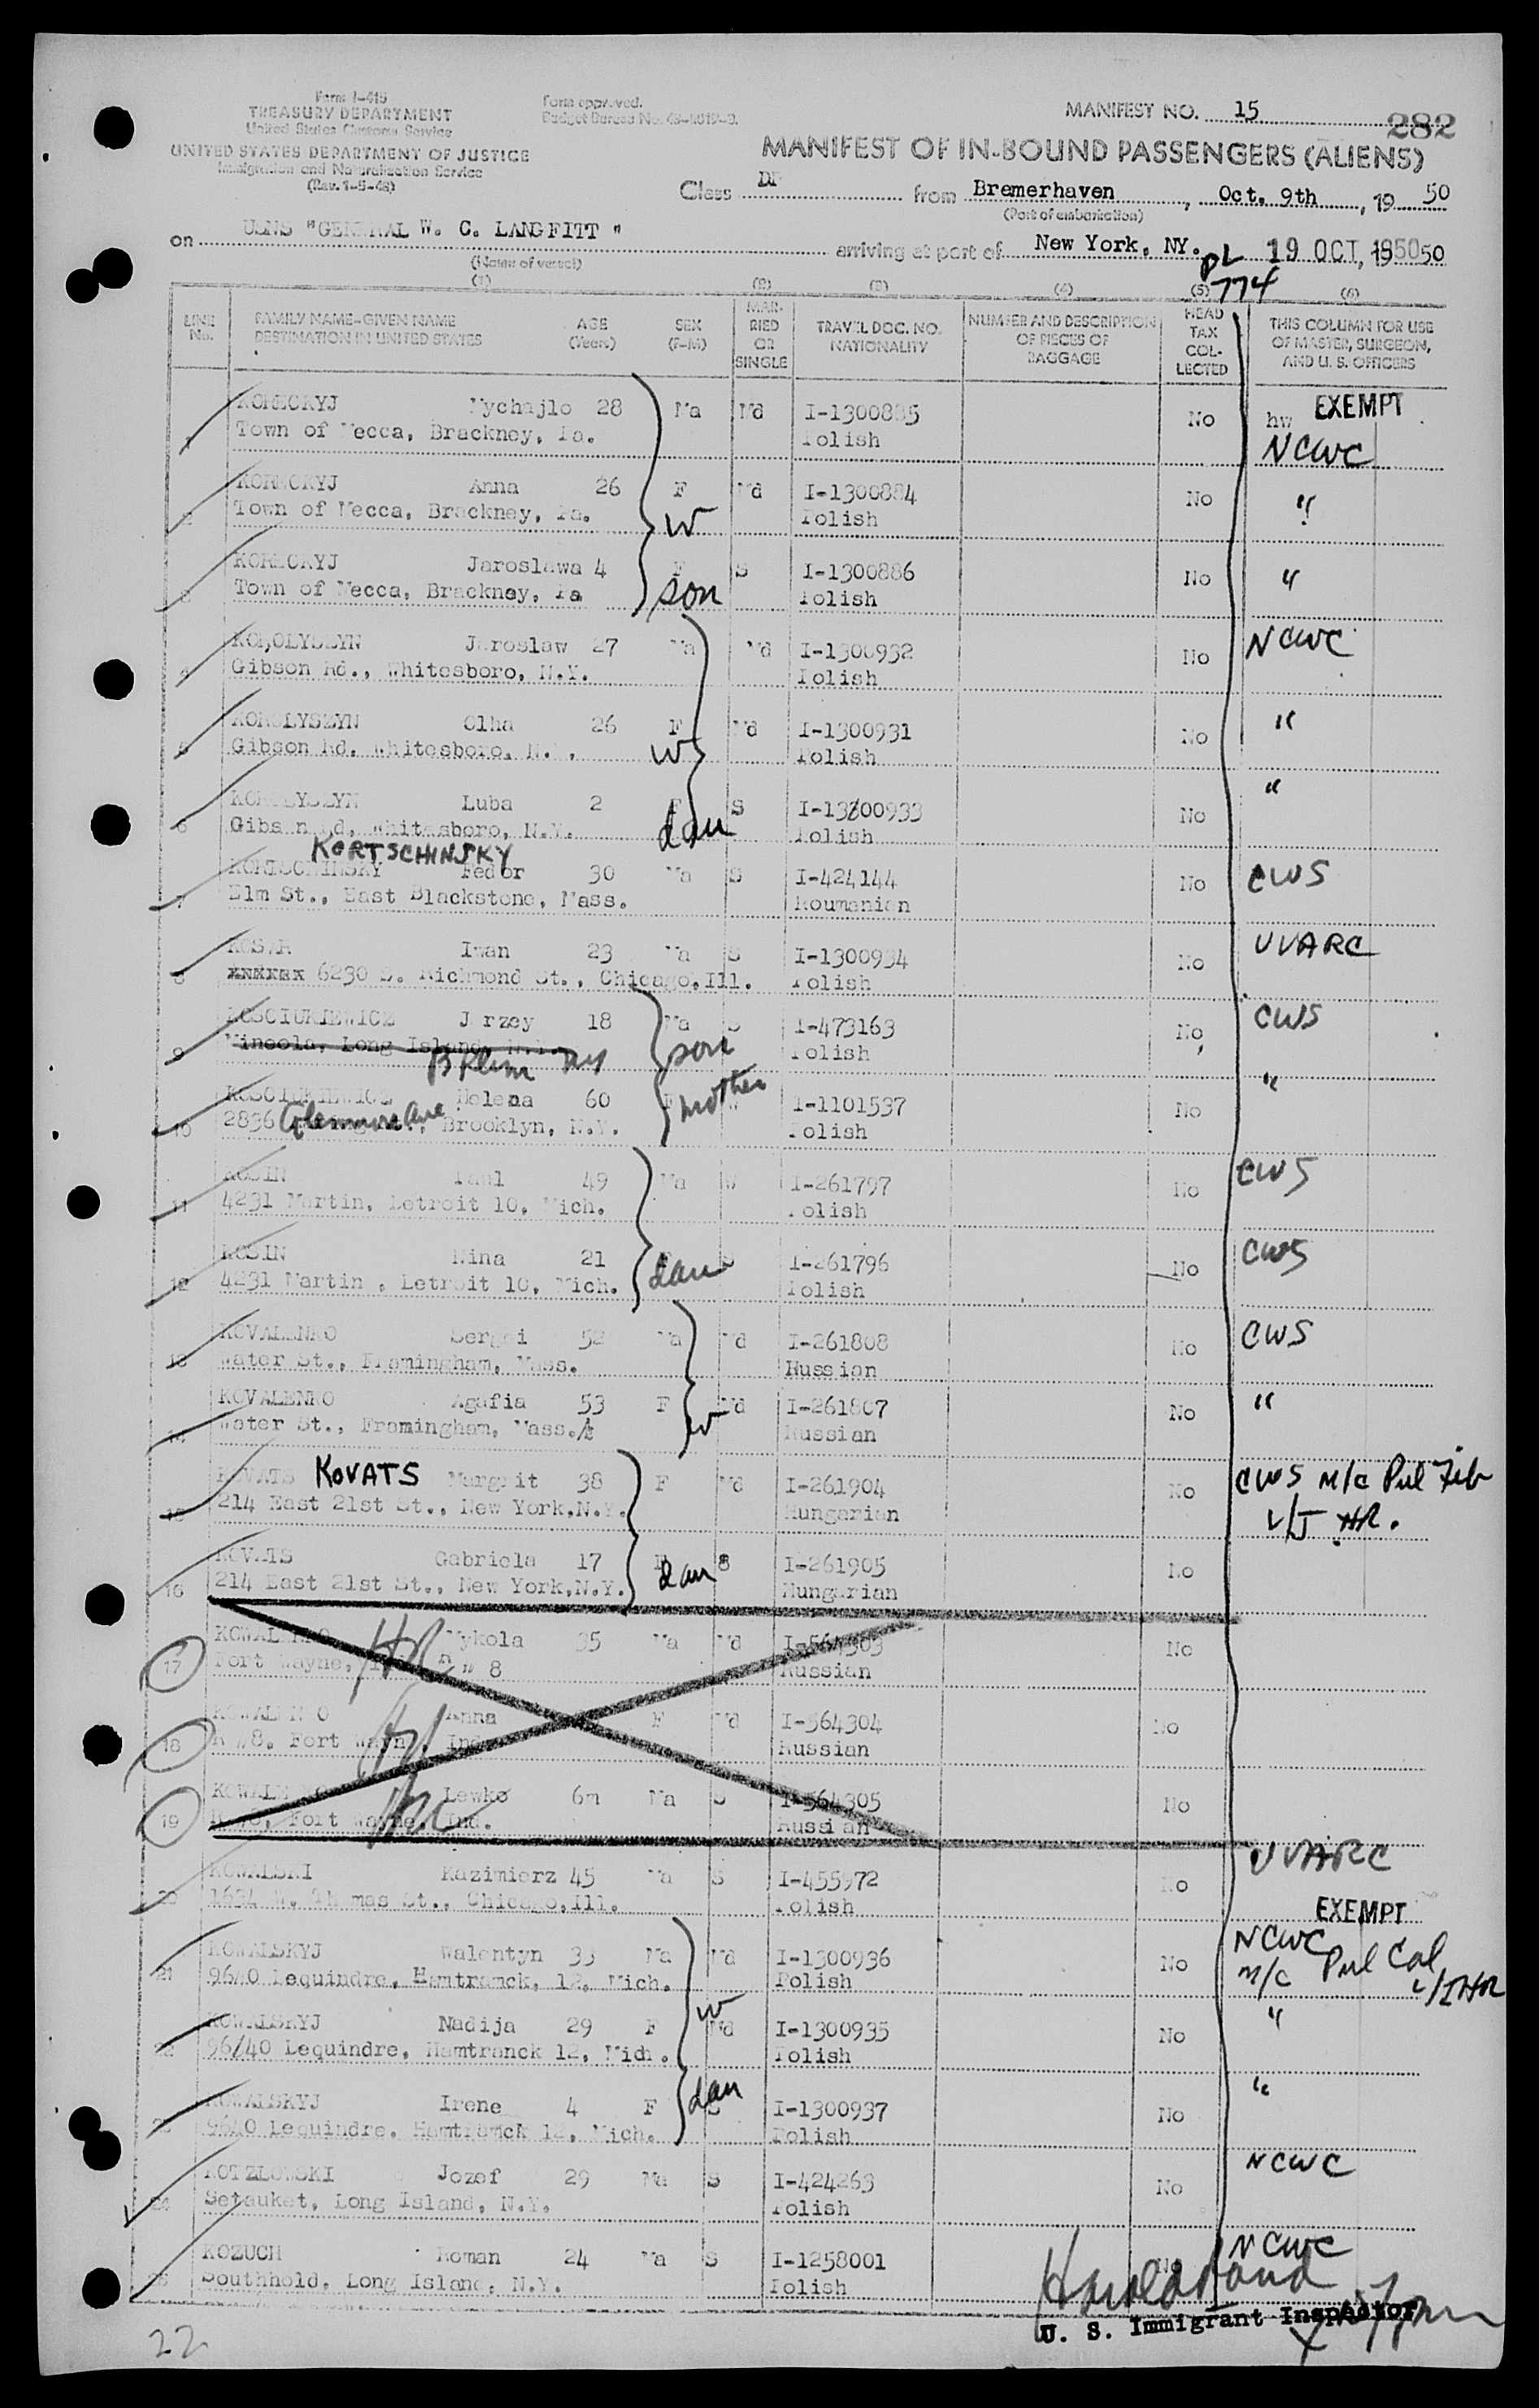 Form I-415
TREASURY DEPARTMENT
United States Customs Service
UNITED STATES DEPARTMENT OF JUSTICE
Immigration and Naturalization Service
(Rev. 1-5-48)
Form approved.
Budget Bureau No.
MANIFEST NO. 15
282
MANIFEST OF IN-BOUND PASSENGERS (ALIENS)
Class DP from Bremerhaven, Oct. 9th, 19 50
(Port of embarkation)
on USNS "GENERAL W. C. LANGFITT" arriving at port of New York, NY. 19 OCT, 1950 50
(Name of vessel)
PL 774
(1) (2) (3) (4) (5) (6)
LINE No. FAMILY NAME-GIVEN NAME DESTINATION IN UNITED STATES AGE (Years) SEX (F-M) MARRIED OR SINGLE TRAVEL DOC. NO. NATIONALITY NUMBER AND DESCRIPTION OF PIECES OF BAGGAGE HEAD TAX COLLECTED THIS COLUMN FOR USE OF MASTER, SURGEON, AND U. S. OFFICERS
1 KORECKYJ Mychajlo 28 Ma Md I-1300885 No hw EXEMPT
Town of Mecca, Brackney, Pa. Polish NCWC
2 KORECKYJ Anna 26 F Md I-1300884 No "
Town of Mecca, Brackney, Pa. W Polish
3 KORECKYJ Jaroslawa 4 F S I-1300886 No "
Town of Mecca, Brackney, Pa son Polish
4 KOROLYSZYN Jaroslaw 27 Ma Md I-1300932 No NCWC
Gibson Rd., Whitesboro, N.Y. Polish
5 KOROLYSZYN Olha 26 F Md I-1300931 No "
Gibson Rd. Whitesboro, N. , W Polish
6 KOROLYSZYN Luba 2 F S I-1300933 No "
Gibson Rd, Whitesboro, N.Y. dau Polish
KORTSCHINSKY
7 KORTSCHINSKY Fedor 30 Ma S I-424144 No CWS
Elm St., East Blackstone, Mass. Roumanian
8 Iwan 23 Ma S I-1300934 No UUARC
6230 S. Richmond St., Chicago, Ill. Polish
9 KOSCIUKIEWICZ Jerzey 18 Ma S I-473163 No CWS
Mineola, Long Island, N.Y. Bklyn NY son Polish
10 KOSCIUKIEWICZ Helena 60 F W I-1101537 No "
2836 Glenmore Ave Brooklyn, N.Y. mother Polish
11 KOSIN Paul 49 Ma W I-261797 No CWS
4231 Martin, Detroit 10, Mich. Polish
12 KOSIN Nina 21 S I-261796 No CWS
4231 Martin, Detroit 10, Mich. dau Polish
13 KOVALENKO Sergei 52 Ma Md I-261808 No CWS
Water St., Framingham, Mass. Russian
14 KOVALENKO Agafia 53 F Md I-261807 No "
Water St., Framingham, Mass. W Russian
15 KOVATS KOVATS Margit 38 F Md I-261904 No CWS M/C Pul Fib
214 East 21st St., New York, N.Y. Hungarian HR.
16 KOVATS Gabriela 17 F S I-261905 No
214 East 21st St., New York, N.Y. dau Hungarian
17 KOWALENKO Mykola 35 Ma Md I-564303 No
Fort Wayne, 8 Russian
18 KOWALENKO Anna F Md I-564304 No
8. Fort Wayne, Ind. Russian
19 KOWALENKO Lewko 6m Ma S I-564305 No
Fort Wayne, Ind. Russian
20 KOWALSKI Kazimierz 45 Ma S I-455972 No UUARC
1634 W. Thomas St., Chicago, Ill. Polish EXEMPT
21 KOWALSKYJ Walentyn 39 Ma Md I-1300936 No NCWC
9640 Lequindre, Hamtramck, 12, Mich. Polish M/C Pul Cal
22 KOWALSKYJ Nadija 29 F W Md I-1300935 No "
96/40 Lequindre, Hamtramck 12, Mich. Polish
23 KOWALSKYJ Irene 4 F dau S I-1300937 No "
9640 Lequindre, Hamtramck 12, Mich. Polish
24 KOTZLOWSKI Jozef 29 Ma S I-424263 No NCWC
Setauket, Long Island, N.Y. Polish
25 KOZUCH Roman 24 Ma S I-1258001 No NCWC
Southhold, Long Island, N.Y. Polish
U. S. Immigrant Inspector
22